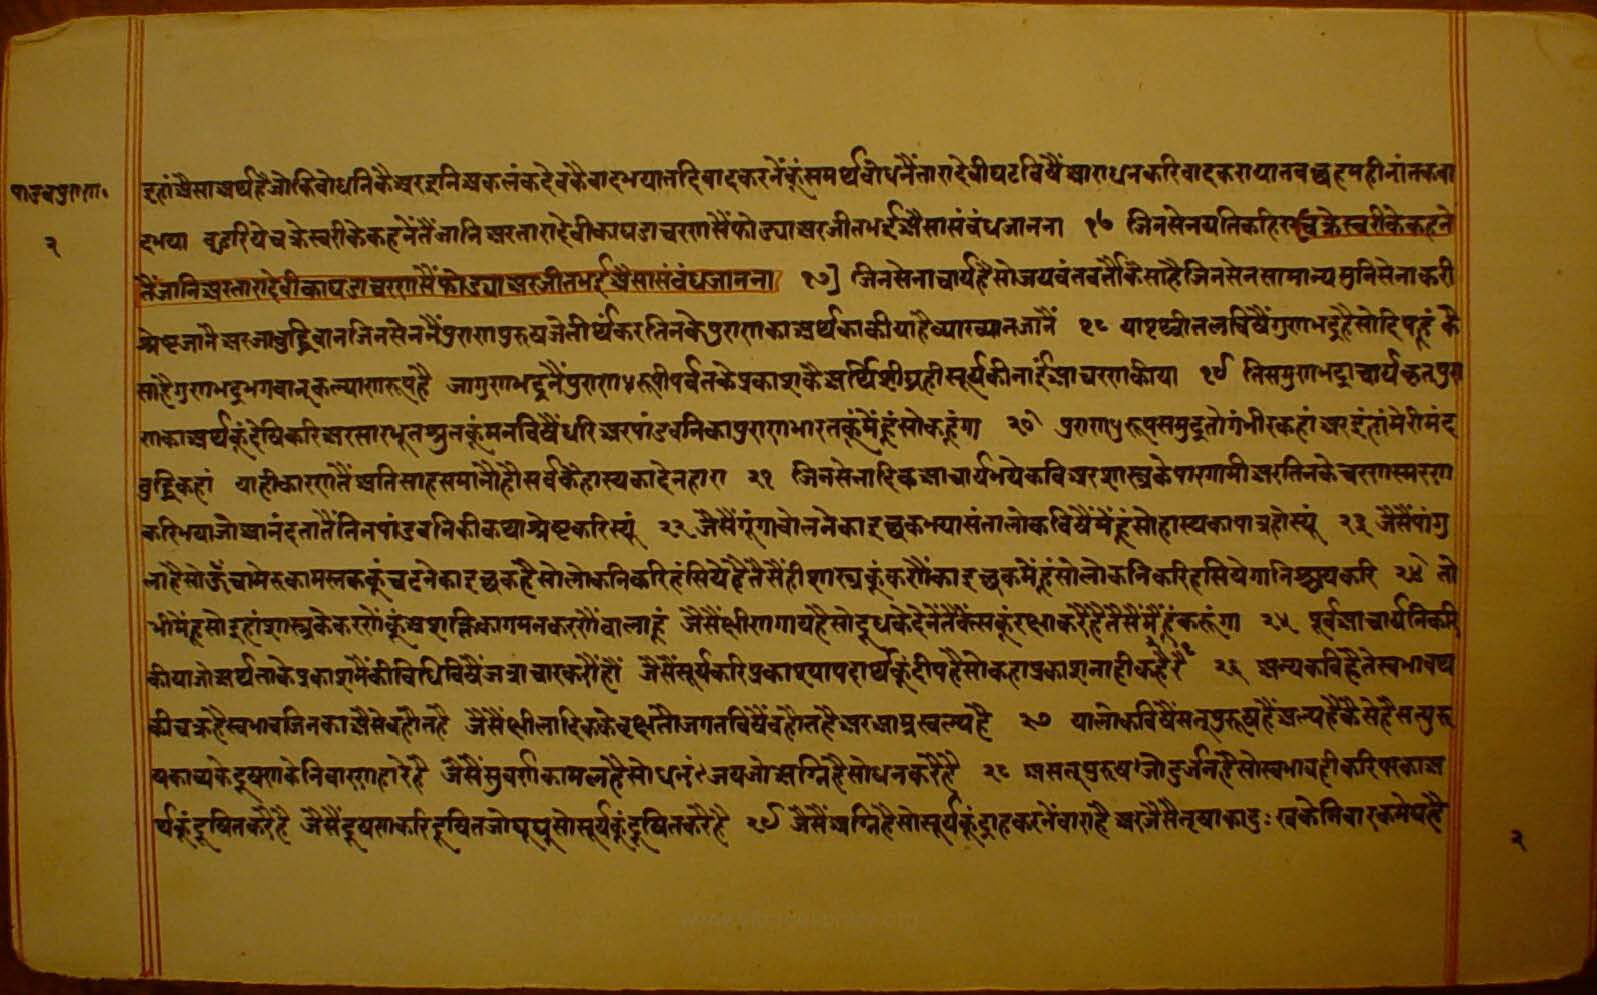 पांडवपुराण॰
२
इहां ऐसा अर्थ है जो कि बोधनिकै अर इनि अकलंकदेवकै वाद भया तदि वाद करनें कूं समर्थ बोधनैं तारादेवी घट विषैं आराधन करि वाद कराया तब छह महीनां तक वा
द भया चक्रेस्वरी के कहनें तैं जानि अर तारादेवी का घडा चरण सैं फोड्या अर जीत भई ऐसा संबंध जानना १७ जिनसेन यति चक्रेस्वरी के कहने
तैं जानि अर तारादेवी का घडा चरण सैं फोड्या अर जीत भई ऐसा संबंध जानना १७ जिनसेनाचार्य है सो जयवंत वर्तौ कैसा है जिनसेन सामान्य मुनि सेना करी
श्रेष्ट जानै अर जा बुद्धिवान जिनसेननैं पुराण पुरुष जे तीर्थंकर तिनके पुराण का अर्थ का कीया है व्याख्यान जानैं १८ या पृथ्वीतल विषैं गुणभद्र है सो दिपहूं कै
सा है गुणभद्र भगवान् कल्याणरूप है जा गुणभद्रनैं पुराणरूपी पर्वत के प्रकाश कै अर्थि शीघ्रही सूर्य की नाई आचरण कीया १९ तिस गुणभद्राचार्य कृत पुरा
ण का अर्थ कूं देषि करि अर सारभूत श्रुत कूं मन विषैं धरि अर पांडवनि का पुराण भारत कूं मैं हूं सो कहूंगा २० पुराण पुरुष समुद्र तो गंभीर कहां अर इहां मेरी मंद
बुद्धि कहां याही कारण तैं अति साहस मानौं हौ सर्व कै हास्य का देनहारा २१ जिनसेनादिक आचार्य भये कवि अर शास्त्र के पारगामी अर तिनके चरण स्मरण
करि भया जो आनंद तातैं तिन पांडवनि की कथा श्रेष्ट करिस्यूं २२ जैसैं गूंगा बोलने का इछक भया संता लोक विषैं मैं हूं सो हास्य का पात्र होस्यूं २३ जैसैं पांगु
ला है सो ऊँचा मेरु का मस्तक कूं चढने का इछक है सो लोकनि करि हंसिये है तैसैं ही शास्त्र कूं करणैं का इछक मैं हूं सो लोकनि करि हसियेगा निश्चय करि २४ तो
भी मैं हूं सो इहां शास्त्र के करणें कूं गमन करणैं वाला हूं जैसैं क्षीण गाय है सो दूध के देनें तैं वत्स कूं रक्षा करै है तैसैं मैं हूं करूंगा २५ पूर्व आचार्यनि करि
कीया जो अर्थ ता के प्रकाश मैं की विधि विषैं जैसैं सूर्य करि प्रकाश्या पदार्थ कूं दीप है सो कहा प्रकाश नाही करै है २६ अन्य कवि है ते स्वभाव थ
की वक्र है स्वभाव जिनका ऐसे बहौत है जैसैं क्षीलादिक के वृक्ष तौ जगत विषैं बहौत है अर आम्र स्वल्प है २७ या लोक विषैं सत्पुरुष है अल्प है कैसे है सत्पुरु
ष काव्य के दूषण के निवारणहारे है जैसैं सुवर्ण का मल है सो धन जो अग्नि है सो धन करै है २८ असत्पुरुष जो दुर्जन है सो स्वभावही करि पर का अ
र्थ कूं दूषित करै है जैसैं दूषण करि दूषित जो घूघू सो सूर्य कूं दूषित करै है २९ जैसैं अग्नि है सो सूर्य कूं दाह करनें वारा है अर जैसैं तृषा का दुःख के निवारक मेघ है
२